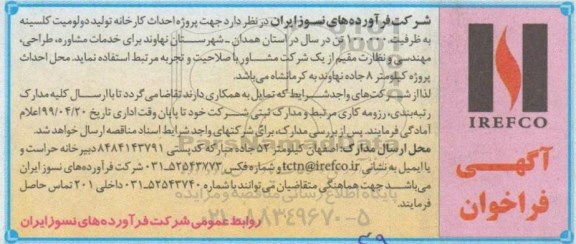 شرکت فرآورده‌های نسوز ایران در نظر دارد جهت پروژه احداث کارخانه تولید دولومیت کلسینه
به ظرفیت ۱۰۰.۰۰۰ تن در سال در استان همدان - شهرستان نهاوند برای خدمات مشاوره، طراحی،
مهندسی و نظارت مقیم از یک شرکت مشاور با صلاحیت و تجربه مرتبط استفاده نماید. محل احداث
پروژه کیلومتر ۸ جاده نهاوند به کرمانشاه می‌باشد.
لذا از شرکت‌های واجد شرایط که تمایل به همکاری دارند تقاضا می‌گردد تا با ارسال کلیه مدارک
رتبه‌بندی، رزومه کاری مرتبط و مدارک ثبتی شرکت خود تا پایان وقت اداری تاریخ ۹۹/۰۴/۲۰ اعلام
آمادگی فرمایند. پس از بررسی مدارک، برای شرکتهای واجد شرایط اسناد مناقصه ارسال خواهد شد.
محل ارسال مدارک: اصفهان کیلومتر ۵۳ جاده مبارکه کدپستی ۸۴۸۴۱۴۳۷۹۱ دبیرخانه حراست و
یا ایمیل به نشانی tctn@irefco.ir و شماره فکس ۵۲۵۴۳۷۷۳-۰۳۱ شرکت فرآورده های نسوز ایران
می‌باشد. جهت هماهنگی متقاضیان می‌توانند با شماره ۵۲۵۴۳۷۴۰-۰۳۱ داخلی ۲۰۱ تماس حاصل
فرمایند.
روابط عمومی شرکت فرآورده‌های نسوز ایران
IREFCO
آگهی
فراخوان
پایگاه اطلاع رسانی مناقصه و مزایده
۰۲۱-۸۸۳۴۹۶۷۰-۵